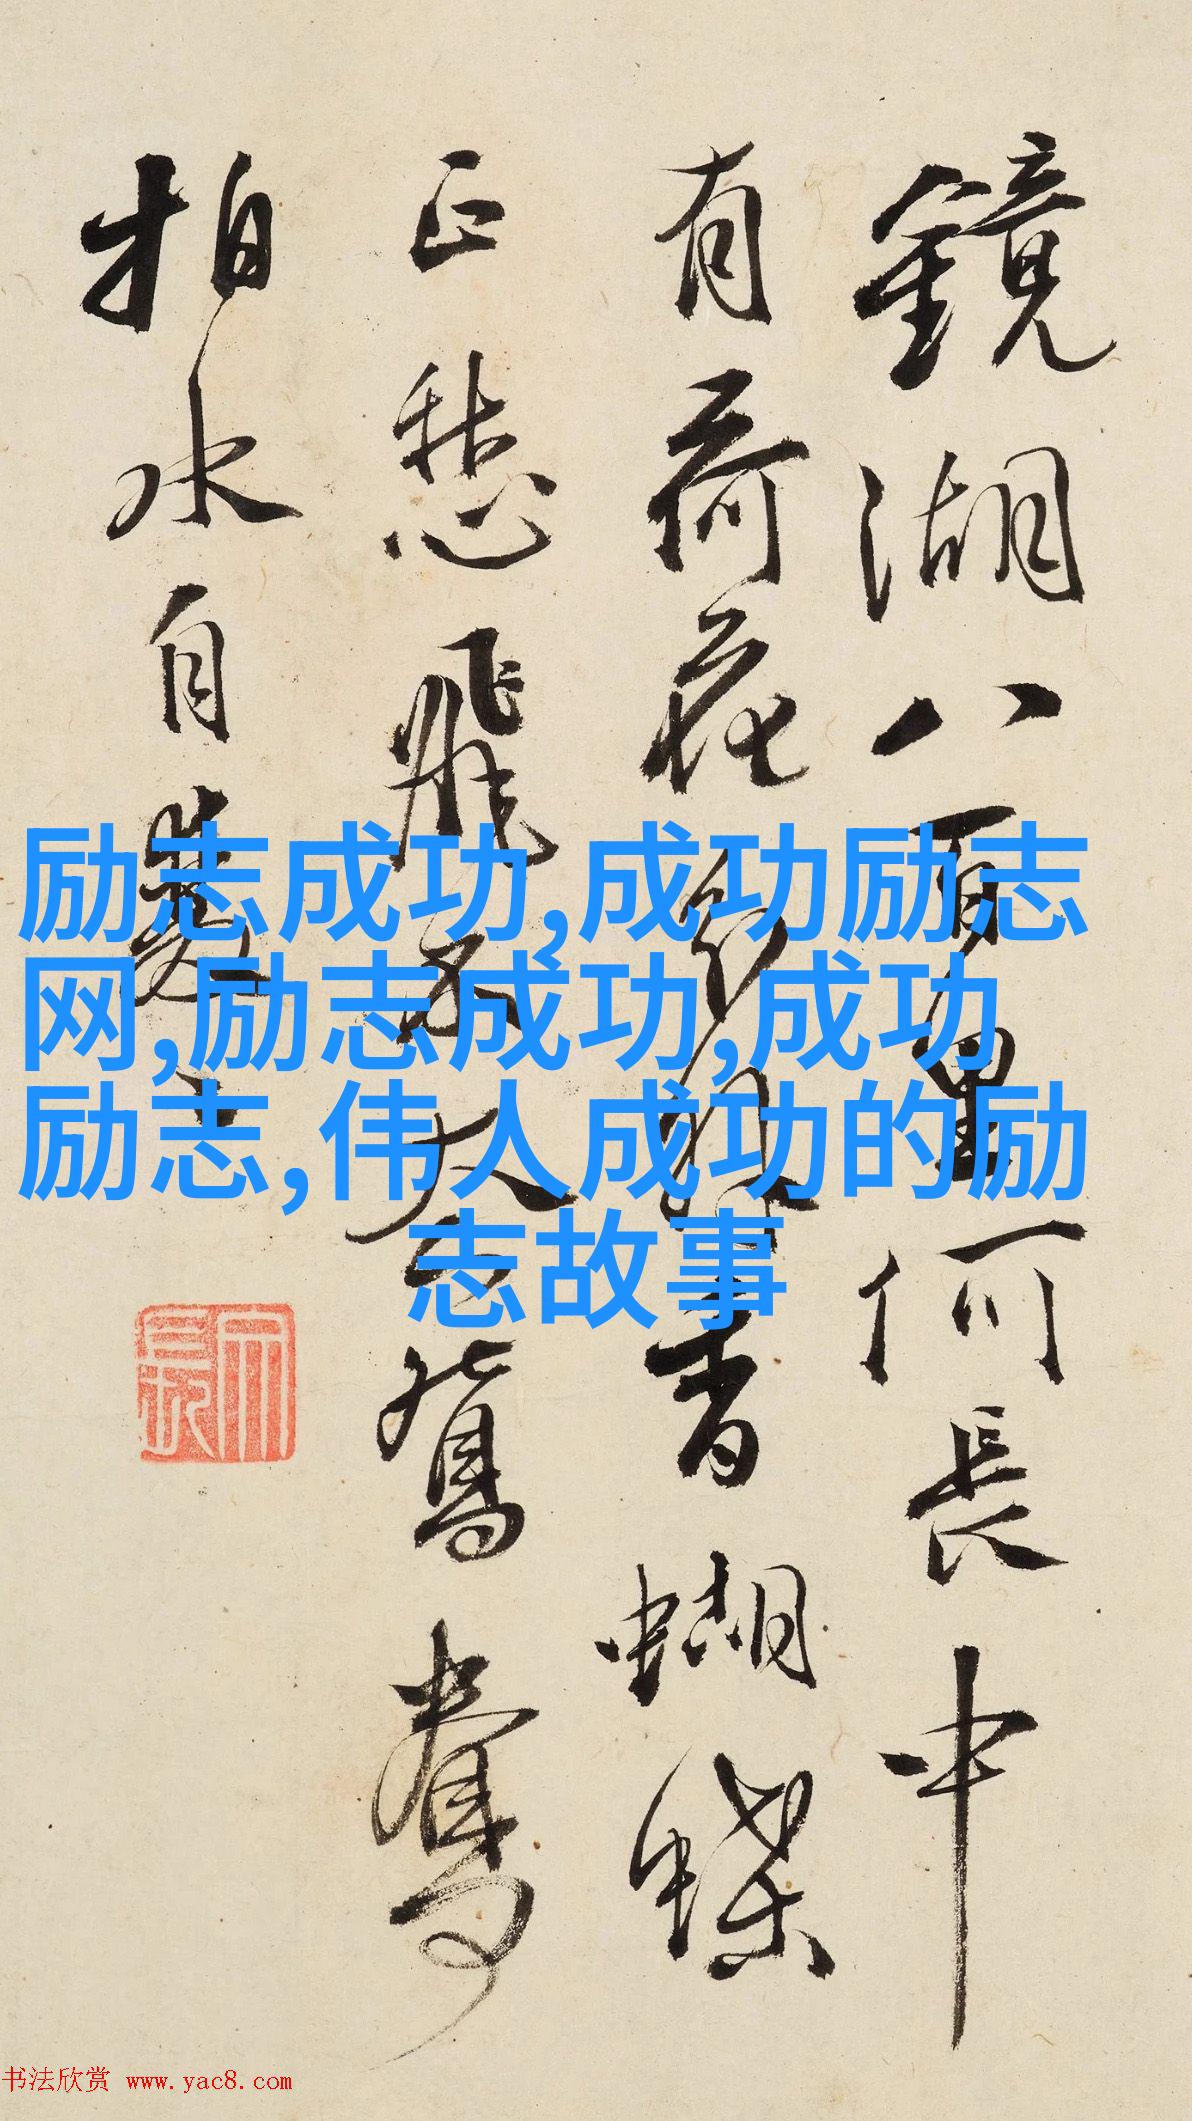 鏡湖八百里何長中
有荷花香蝴蝶
正愁飛不鴛鴦
拍水自雙
励志成功,成功励志
网,励志成功,成功
励志,伟人成功的励
志故事
书法欣赏 www.yac8.com